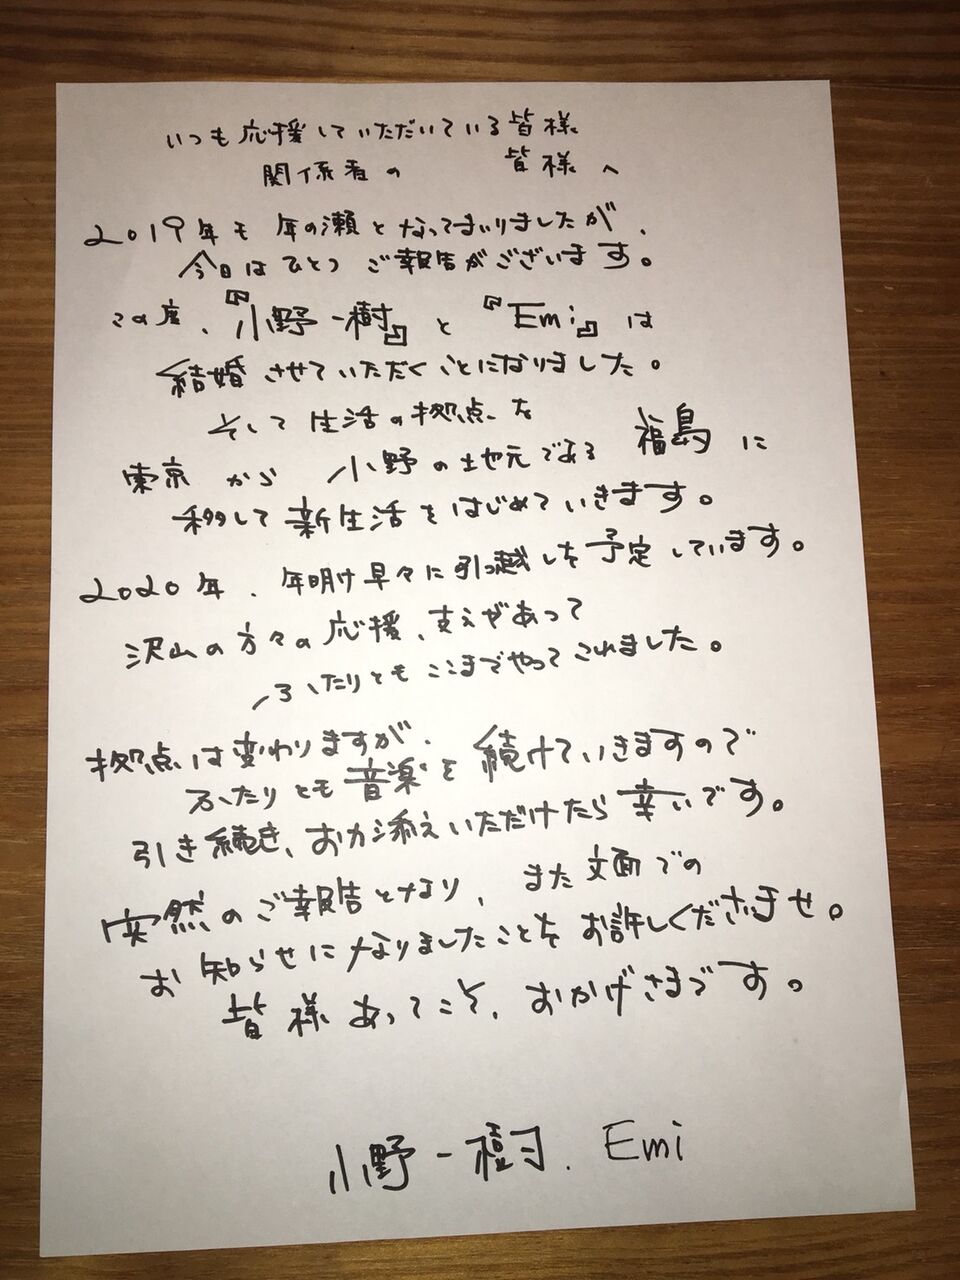 いつも応援していただいている皆様
関係者の 皆様へ
2019年も年の瀬となってまいりましたが、
今日はひとつご報告がございます。
この度、『小野一樹』と『Emi』は
結婚させていただくことになりました。
そして生活の拠点を
東京から 小野の地元である 福島に
移して新生活をはじめていきます。
2020年、年明け早々に引っ越しを予定しています。
沢山の方々の応援、支えがあって
ふたりともここまでやってこれました。
拠点は変わりますが、
ふたりとも音楽を続けていきますので
引き続き、お力添えいただけたら幸いです。
突然のご報告となり、また文面での
お知らせになりましたことをお許しくださいませ。
皆様あってこそ、おかげさまです。
小野一樹、Emi